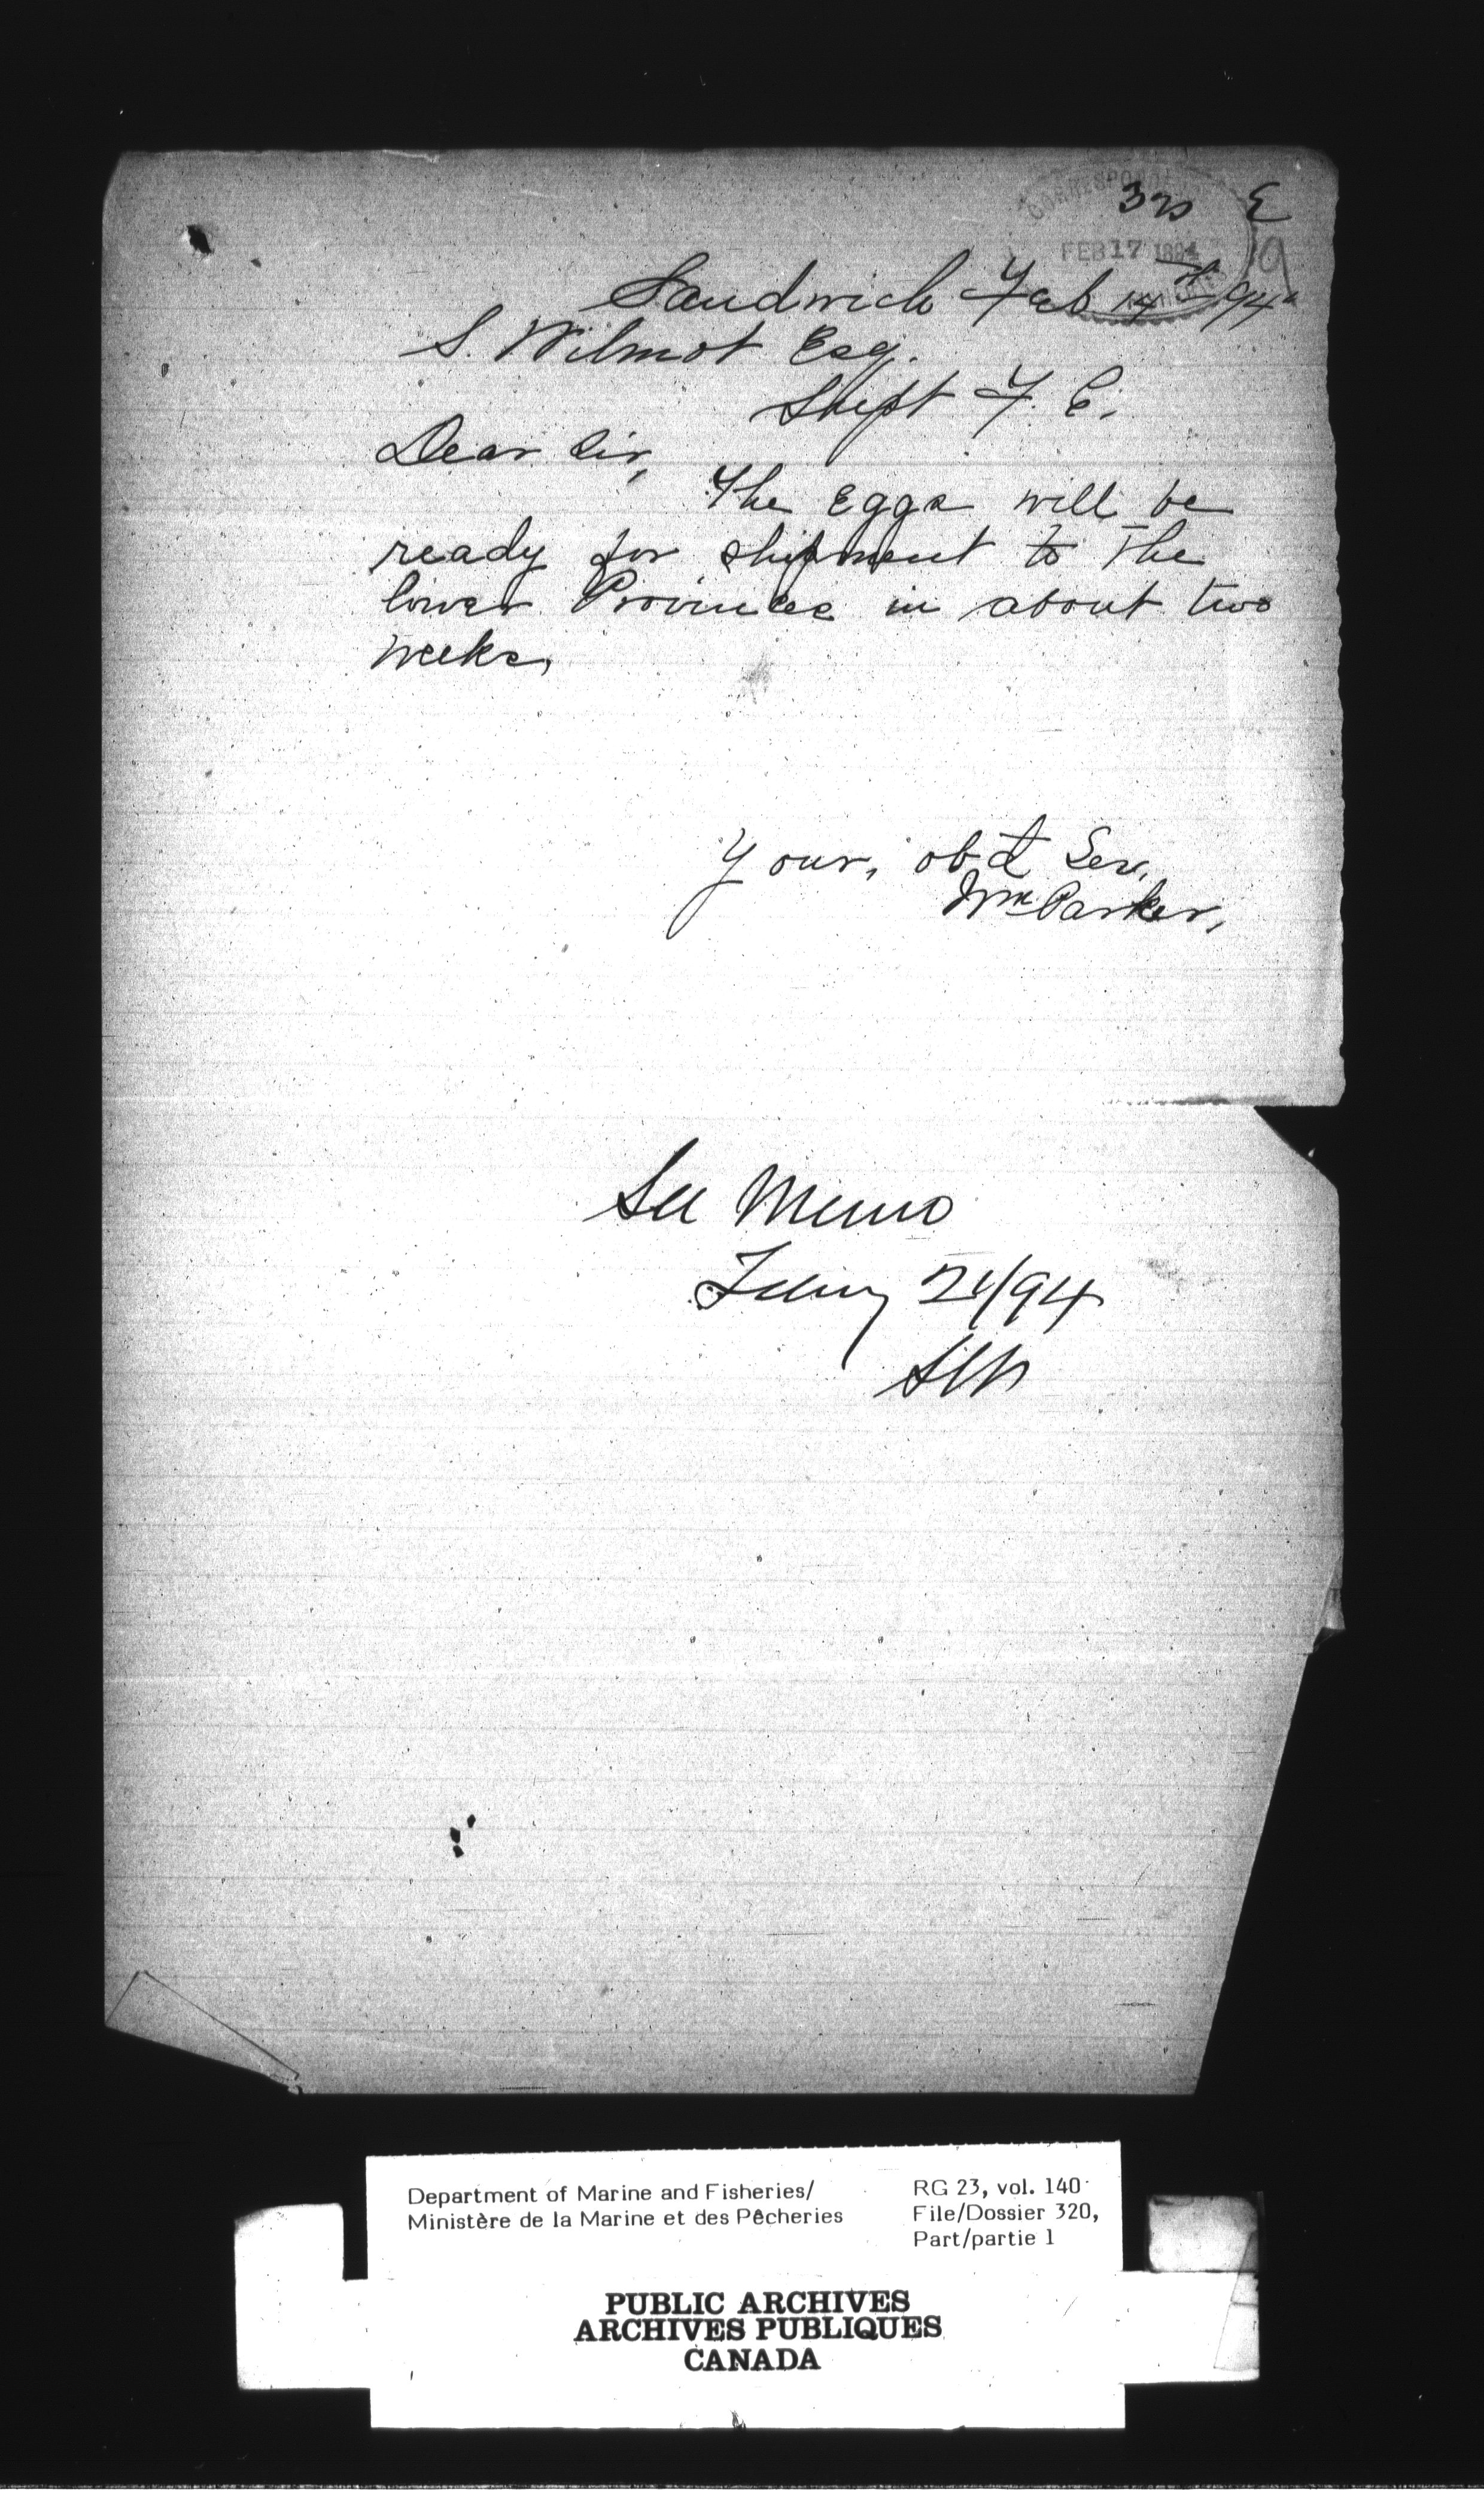 320 E
CORRESPOND
FEB 17 1894
Sandwich Feb 14th /94
S. Wilmot Esq.
Supt F. C.
Dear Sir,
The Eggs will be
ready for shipment to the
lower Provinces in about two
weeks,
Your, obdt Ser,
Wm Parker,
See Memo
Febry 21/94
SW
Department of Marine and Fisheries/
Ministère de la Marine et des Pêcheries
RG 23, vol. 140
File/Dossier 320,
Part/partie 1
PUBLIC ARCHIVES
ARCHIVES PUBLIQUES
CANADA